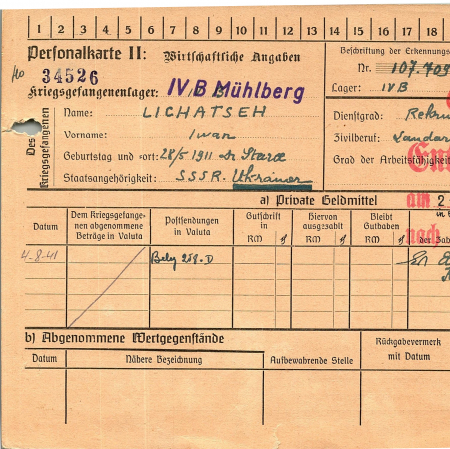 1 2 3 4 5 6 7 8 9 10 11 12 13 14 15 16 17 18
Personalkarte II: Wirtschaftliche Angaben
34526
Kriegsgefangenenlager: IV B Mühlberg
Beschriftung der Erkennungs
Nr. 107.709
Lager: IVB
Des Kriegsgefangenen
Name: LICHATSEH
Vorname: Iwan
Geburtstag und -ort: 28/5 1911
Staatsangehörigkeit: SSSR. Ukrainer
Dienstgrad: Rekru
Zivilberuf: Landar
Grad der Arbeitsfähigkeit
a) Private Geldmittel
am
nach
Datum
Dem Kriegsgefange-
nen abgenommene
Beträge in Valuta
Postsendungen
in Valuta
Gutschrift
in
RM
Hiervon
ausgezahlt
RM
Bleibt
Guthaben
RM
der Zah
4-8-41
b) Abgenommene Wertgegenstände
Datum
Nähere Bezeichnung
Aufbewahrende Stelle
Rückgabevermerk
mit Datum